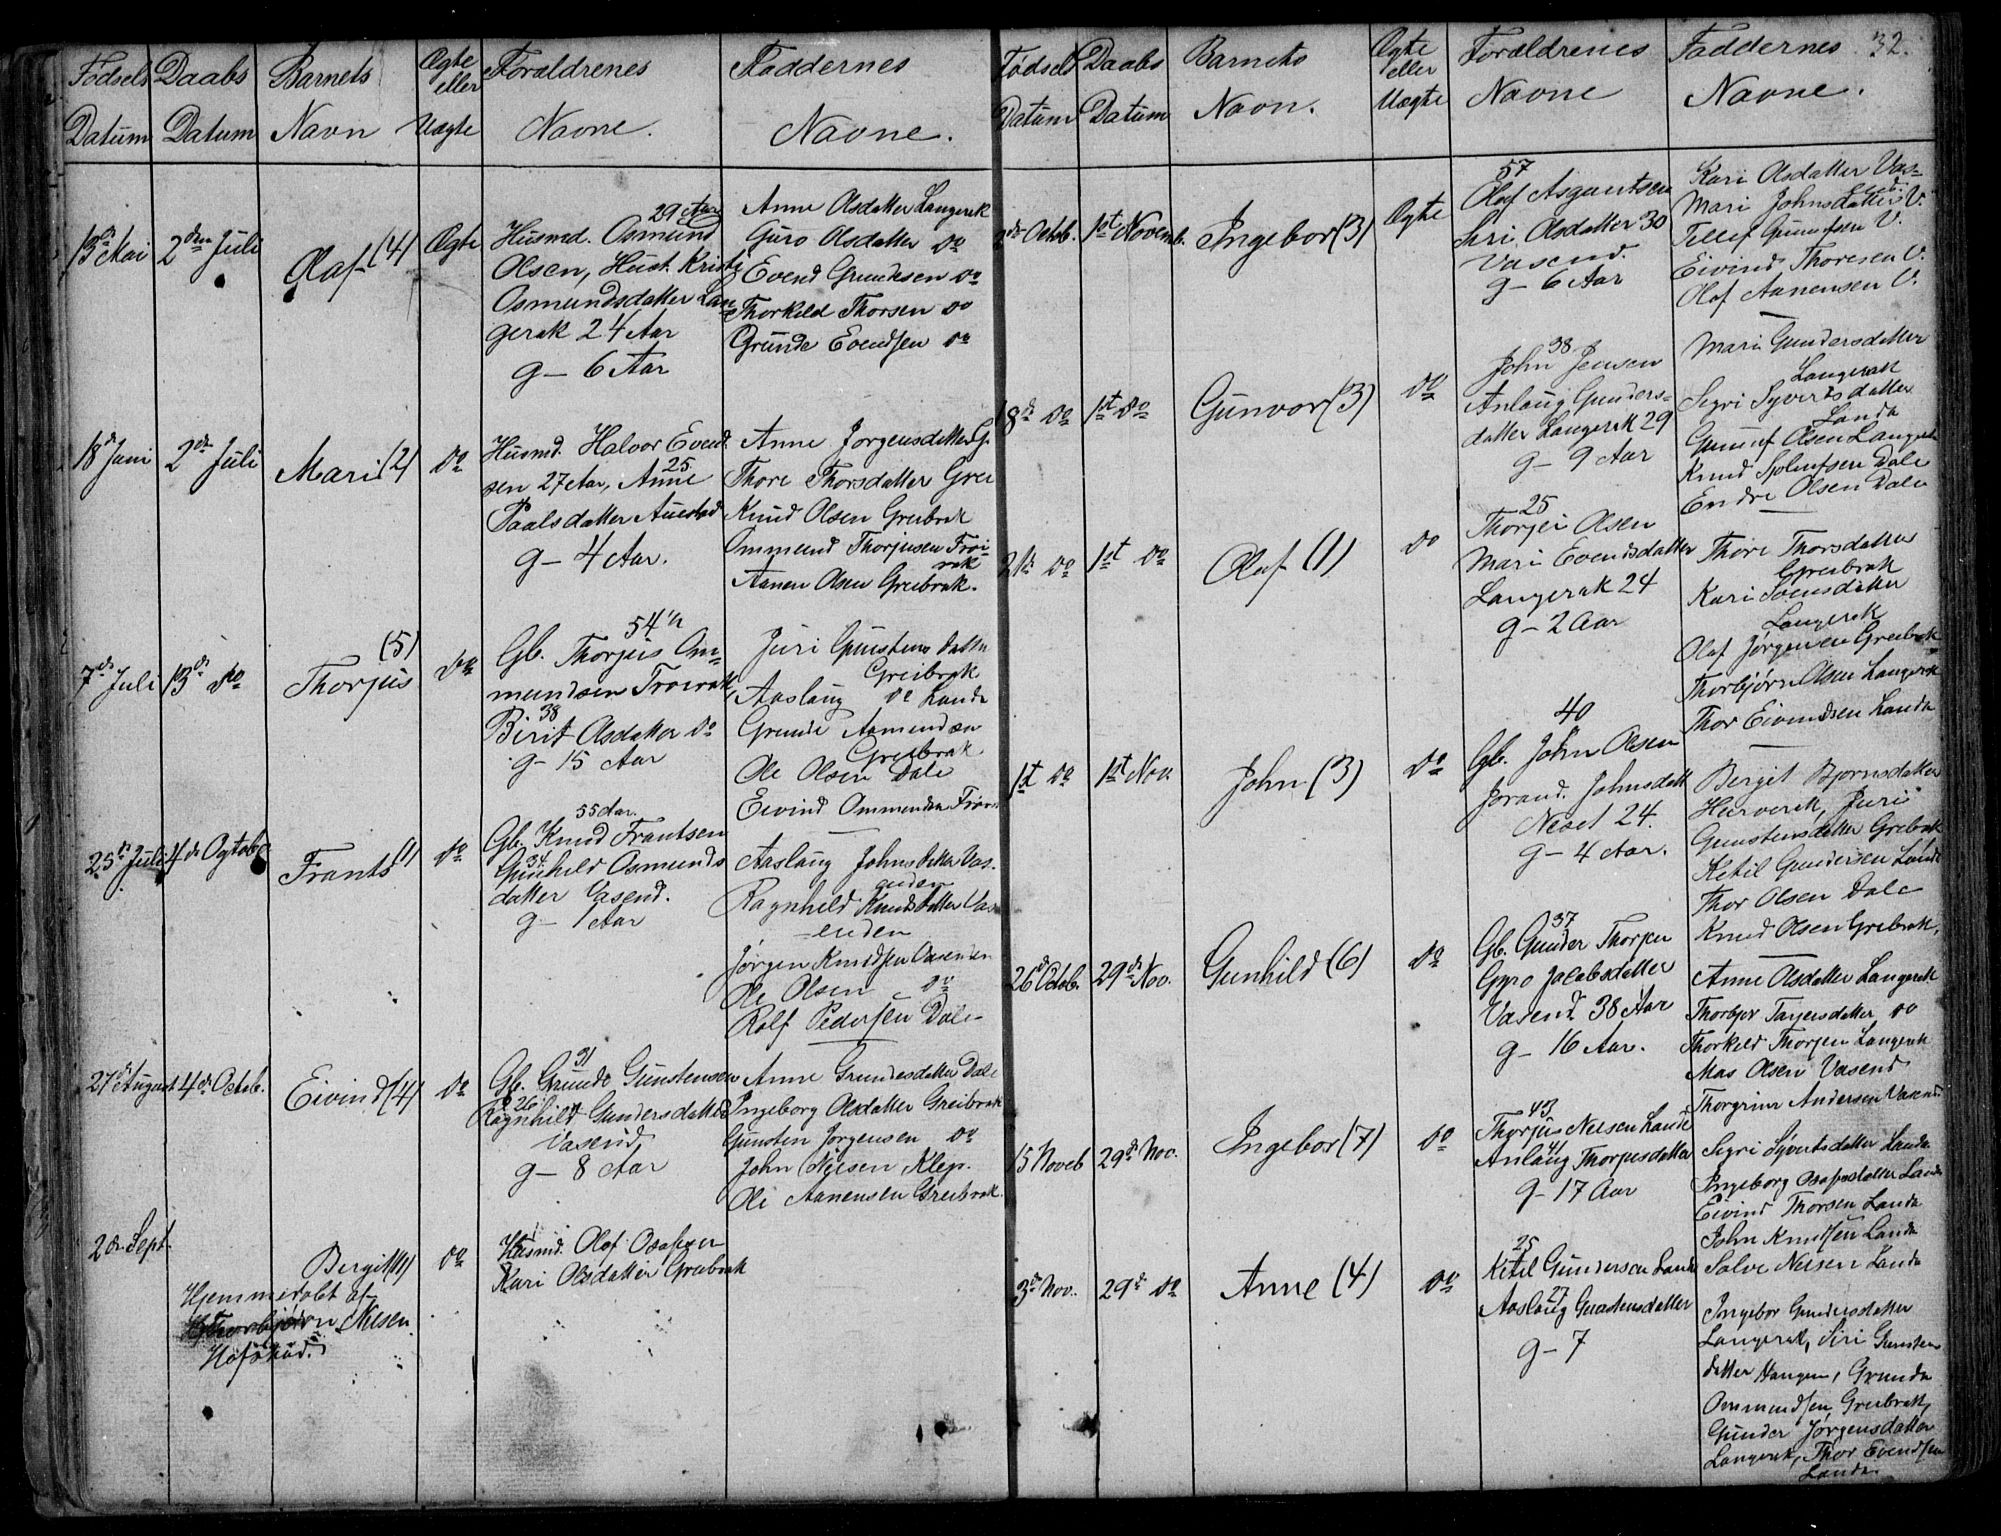 Fødsels Datum
Daabs Datum
Barnets Navn
Ægte eller Uægte
Forældrenes Navne.
Faddernes Navne.
13de Mai
2den Juli
Olaf (4)
Ægte
29 Aar
Husmd. Osmund
Olsen, Hust. Kristi
Osmundsdatter Lan-
gerak 24 Aar
g- 6 Aar
Anne Olsdatter Langerak
Guro Olsdatter do
Evend Grundesen do
Thorkild Thorsen do
Grunde Evendsen do
18de Juni
2de Juli
Mari (2)
do
Husmd. Halvor Evend-
25
sen 27 Aar, Anne
Paalsdatter Austad
g- 4 Aar.
Anne Jorgensdatter G.
Thore Thorsdatter Grei
Knud Olsen Greibrak
Ommund Thorjusen Froi-
rak
Aanen Olsen Greibrak.
7de Juli
13de do
(5)
Thorjus
do
54
Gb. Thorjus Om-
mundsen Froirak
38
Birit Olsdatter do
g- 15 Aar
Juri Gunstens datter
Greibrak
Aaslaug do Landa
Grunde Aamundsen
Greibrak
Ole Olsen Dale
Eivind Ommundsen Froir
25de Juli
4de Ogtobr
Frants (1)
do
55 Aar.
Gb. Knud Frantsen
34
Gunhild Osmunds
datter Vasend.
g- 1 Aar
Aaslaug Johnsdatter Vas-
enden
Ragnhild Knudsdatter Vas
enden
Jørgen Knudsen Vasenden
Ole Olsen do
Rolf Pedersen Dale
27de August
4de Octob.
Eivind (4)
do
31
Gb. Grunde Gunstensen
26
Ragnhild Gundersdatter
Vasend
g- 8 Aar
Anne Grundesdatter Dale
Ingeborg Olsdatter Greibrak
Gunsten Jørgensen do
John Nilsen Klep.
Ole Aanensen Greibrak
2de Sept.
Bergit
do
Husmd. Olaf
Kari Olsdatter Greibrak
Hjemmedøbt af
Thorbjørn Nilsen
32.
Fødsels Datum
Daabs Datum
Barnets Navn.
Ægte eller Uægte
Forældrenes Navne
Faddernes Navne.
2de Octob.
1st Novemb.
Ingebor (3)
Ægte
57
Olaf Asguutsen
Siri Olsdatter 30
Vasend.
g- 6 Aar
Kari Olsdatter Vas-
end.
Mari Johnsdatter V.
Tellef Gunufsen V.
Eivind Thoresen V.
Olaf Aanensen V.
18de do
1st do
Gunvor (3)
do
38
John Jensen
Anlaug Gunders-
datter Langerak 29
g- 9 Aar
Mari Gundersdatter
Langerak
Sigri Syvertsdatter
Landa
Gunuf Olsen Langerak
Knud Dale
Endre Olsen Dale
21de do
1st do
Olaf (1)
do
25
Thorjei Olsen
Mari Evendsdatter
Langerak 24
g- 2 Aar
Thore Thorsdatter
Greibrak
Kari Svensdatter
Langerak
Olaf Jørgensen Greibrak
Thorbjørn Olsen Langerak
Thor Eivendsen Landa
1st do
1st Nov.
John (3)
do
40
Gb. John Olsen
Jorand. Johnsdatt
Neset 24.
g- 4 Aar.
Bergit Bjornsdatter
Hurverak, Juri
Gunstensdatter Greibrak
Ketil Gundersen Landa
Thor Olsen Dale
Knud Olsen Greibrak.
26de Octob.
29de Nov.
Gunhild (6)
do
37
Gb. Gunder Thorjus
Gyro Jacobsdatter
Vasend. 38 Aar
g- 16 Aar.
Anne Olsdatter Langerak
Thorbjor Tarjersdatter do
Thorkild Thorsen Langerak
Mas Olsen Vasend
Thorgrim Andersen Vasend.
15 Noveb
29de Nov.
Ingebor (7)
do
43
Thorjus Nilsen Lande
41
Anlaug Thorjusdatter
g- 17 Aar
Sigri Syvertsdatter Landa
Ingeborg Landa
Eivind Thorsen Landa
John Knudsen Landa
Salve Nilsen Landa
3de Nov.
29de do
Anne (4)
do
25
Ketil Gundersen Landa
27
Aaslaug Gunstensdatter
g- 7
Ingebor Gundersdatter
Langerak, Siri Gunstens
datter Haugen, Grunde
Ommundsen Greibrak,
Gunder Jørgensdatter
Langerak, Thor Evendsen
Landa